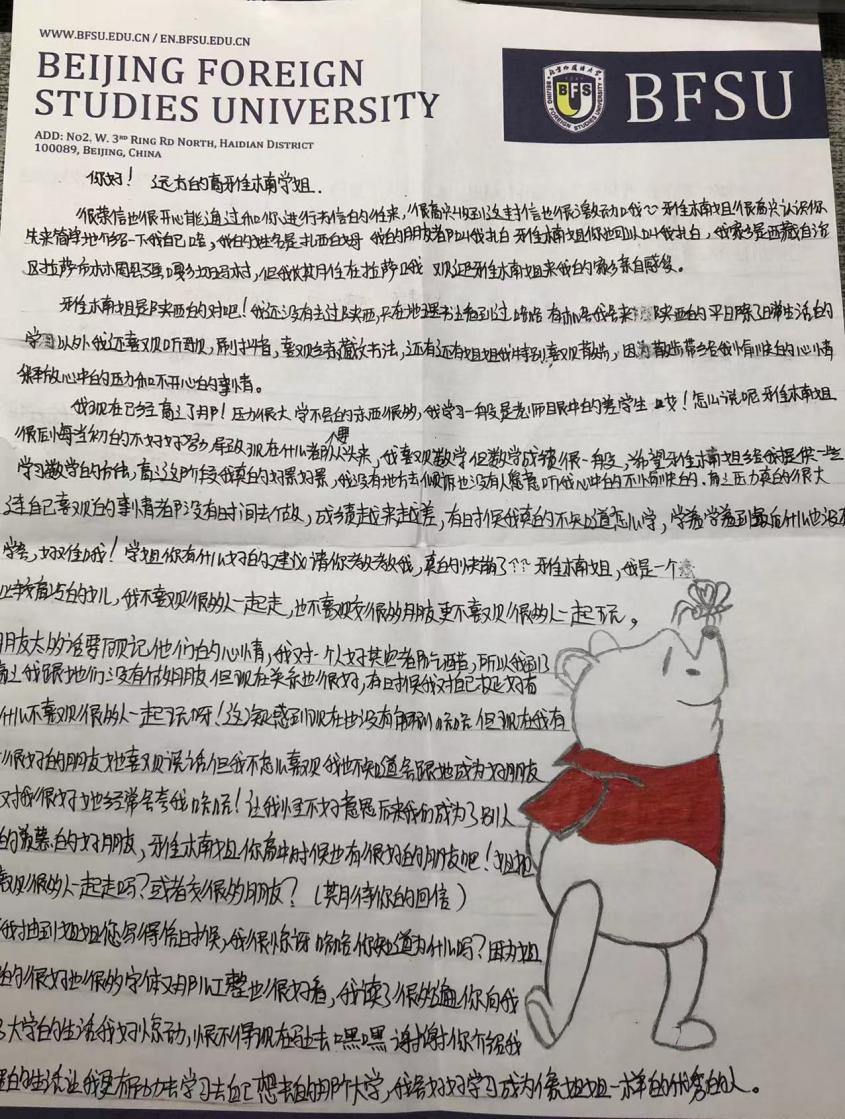 WWW.BFSU.EDU.CN / EN.BFSU.EDU.CN
BEIJING FOREIGN
STUDIES UNIVERSITY
ADD: No2, W. 3RD RING RD NORTH, HAIDIAN DISTRICT
100089, BEIJING, CHINA
BFSU
你好！远方的高雅佳楠学姐.
很荣信也很开心能通过和你进行书信的往来,很高兴收到这封信也很激动哦～雅佳楠姐很高兴认识你
先来简单地介绍一下我自己哈,我的姓名是扎西白姆 我的朋友都叫我扎白 雅佳楠姐你也可以叫我扎白,我家乡是西藏自治
区拉萨市林周县强嘎乡 村,但我长期住在拉萨哦 欢迎雅佳楠姐来我的家乡亲自感受。
雅佳楠姐是陕西的对吧！我还没有去过陕西,只在地理书上看到过哈哈 有机会我会来 陕西的 平日除了日常生活的
学习以外我还喜欢听歌,刷抖音,喜欢练藏文书法,还有还有姐姐我特别喜欢散步,因为散步带给我愉快的心情
释放心中的压力和不开心的事情。
我现在已经高三了耶！压力很大 学不会的东西很多,我学习一般是老师眼中的差学生 哎！怎么说呢 雅佳楠姐
很后悔当初的不好好努力 导致现在什么都要从头来,我喜欢数学但数学成绩很一般,希望雅佳楠姐给我提供一些
学习数学的方法,高三这阶段我真的好累好累,我没有地方去倾诉也没有人愿意听我心中的不愉快的.高三压力真的很大
连自己喜欢的事情都没有时间去做,成绩越来越差,有时候我真的不知道怎么学,学着学着到最后什么也没有
学会,好难哦！学姐你有什么好的建议请你教教我,真的快输了？？雅佳楠姐,我是一个
比较 的女儿,我不喜欢很多人一起走,也不喜欢交很多朋友更不喜欢很多人一起玩,
朋友太多话要顾记他们的心情,我对一个人好其它都吃醋,所以我到了
高三我跟她们没有做好朋友 但现在关系也很好,有时候我对自己挺好奇
什么不喜欢很多人一起玩呀！这疑惑到现在也没有解哈哈 但现在我有
很好的朋友她喜欢说话但我不怎么喜欢 我也不知道会跟她成为好朋友
对我很好她经常会夸我哈哈！让我怪不好意思后来我们成为了别人
的羡慕的好朋友,雅佳楠姐你高中时候也有很好的朋友吧！姐姐
喜欢很多人一起走吗？或者交很多朋友？（期待你的回信）
我抽到姐姐您写得信时候,我很惊讶哈哈你知道为什么吗？因为姐
的很好也很多字体又那么工整也很好看,我读了很多遍你向我
了大学的生活我好惊动,恨不得现在马上去嘿嘿 谢谢你介绍我
里的生活让我更有动力去学习去自己想去的那个大学,我会好好学习成为像姐姐一样的优秀的人。